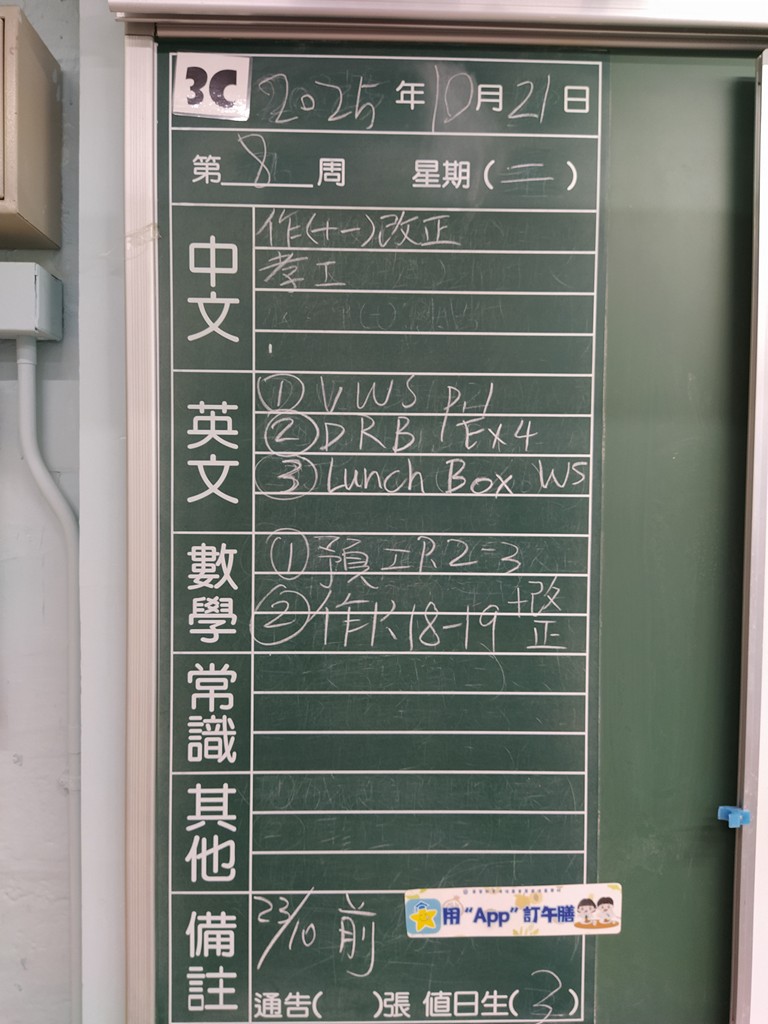 3C 2025 年 10 月 21 日
第 8 周 星期 ( 二 )
中文
作(十一)改正
孝工
英文
① VWS p.1
② DRB Ex4
③ Lunch Box WS
數學
① 預工 P.2-3
② 作 P.18-19 +改正
常識
其他
備註
23/10 前
用 “App” 訂午膳
通告( )張 值日生( 3 )